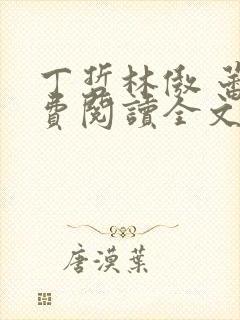 丁哲林傲
費閱讀全文
唐漠葉